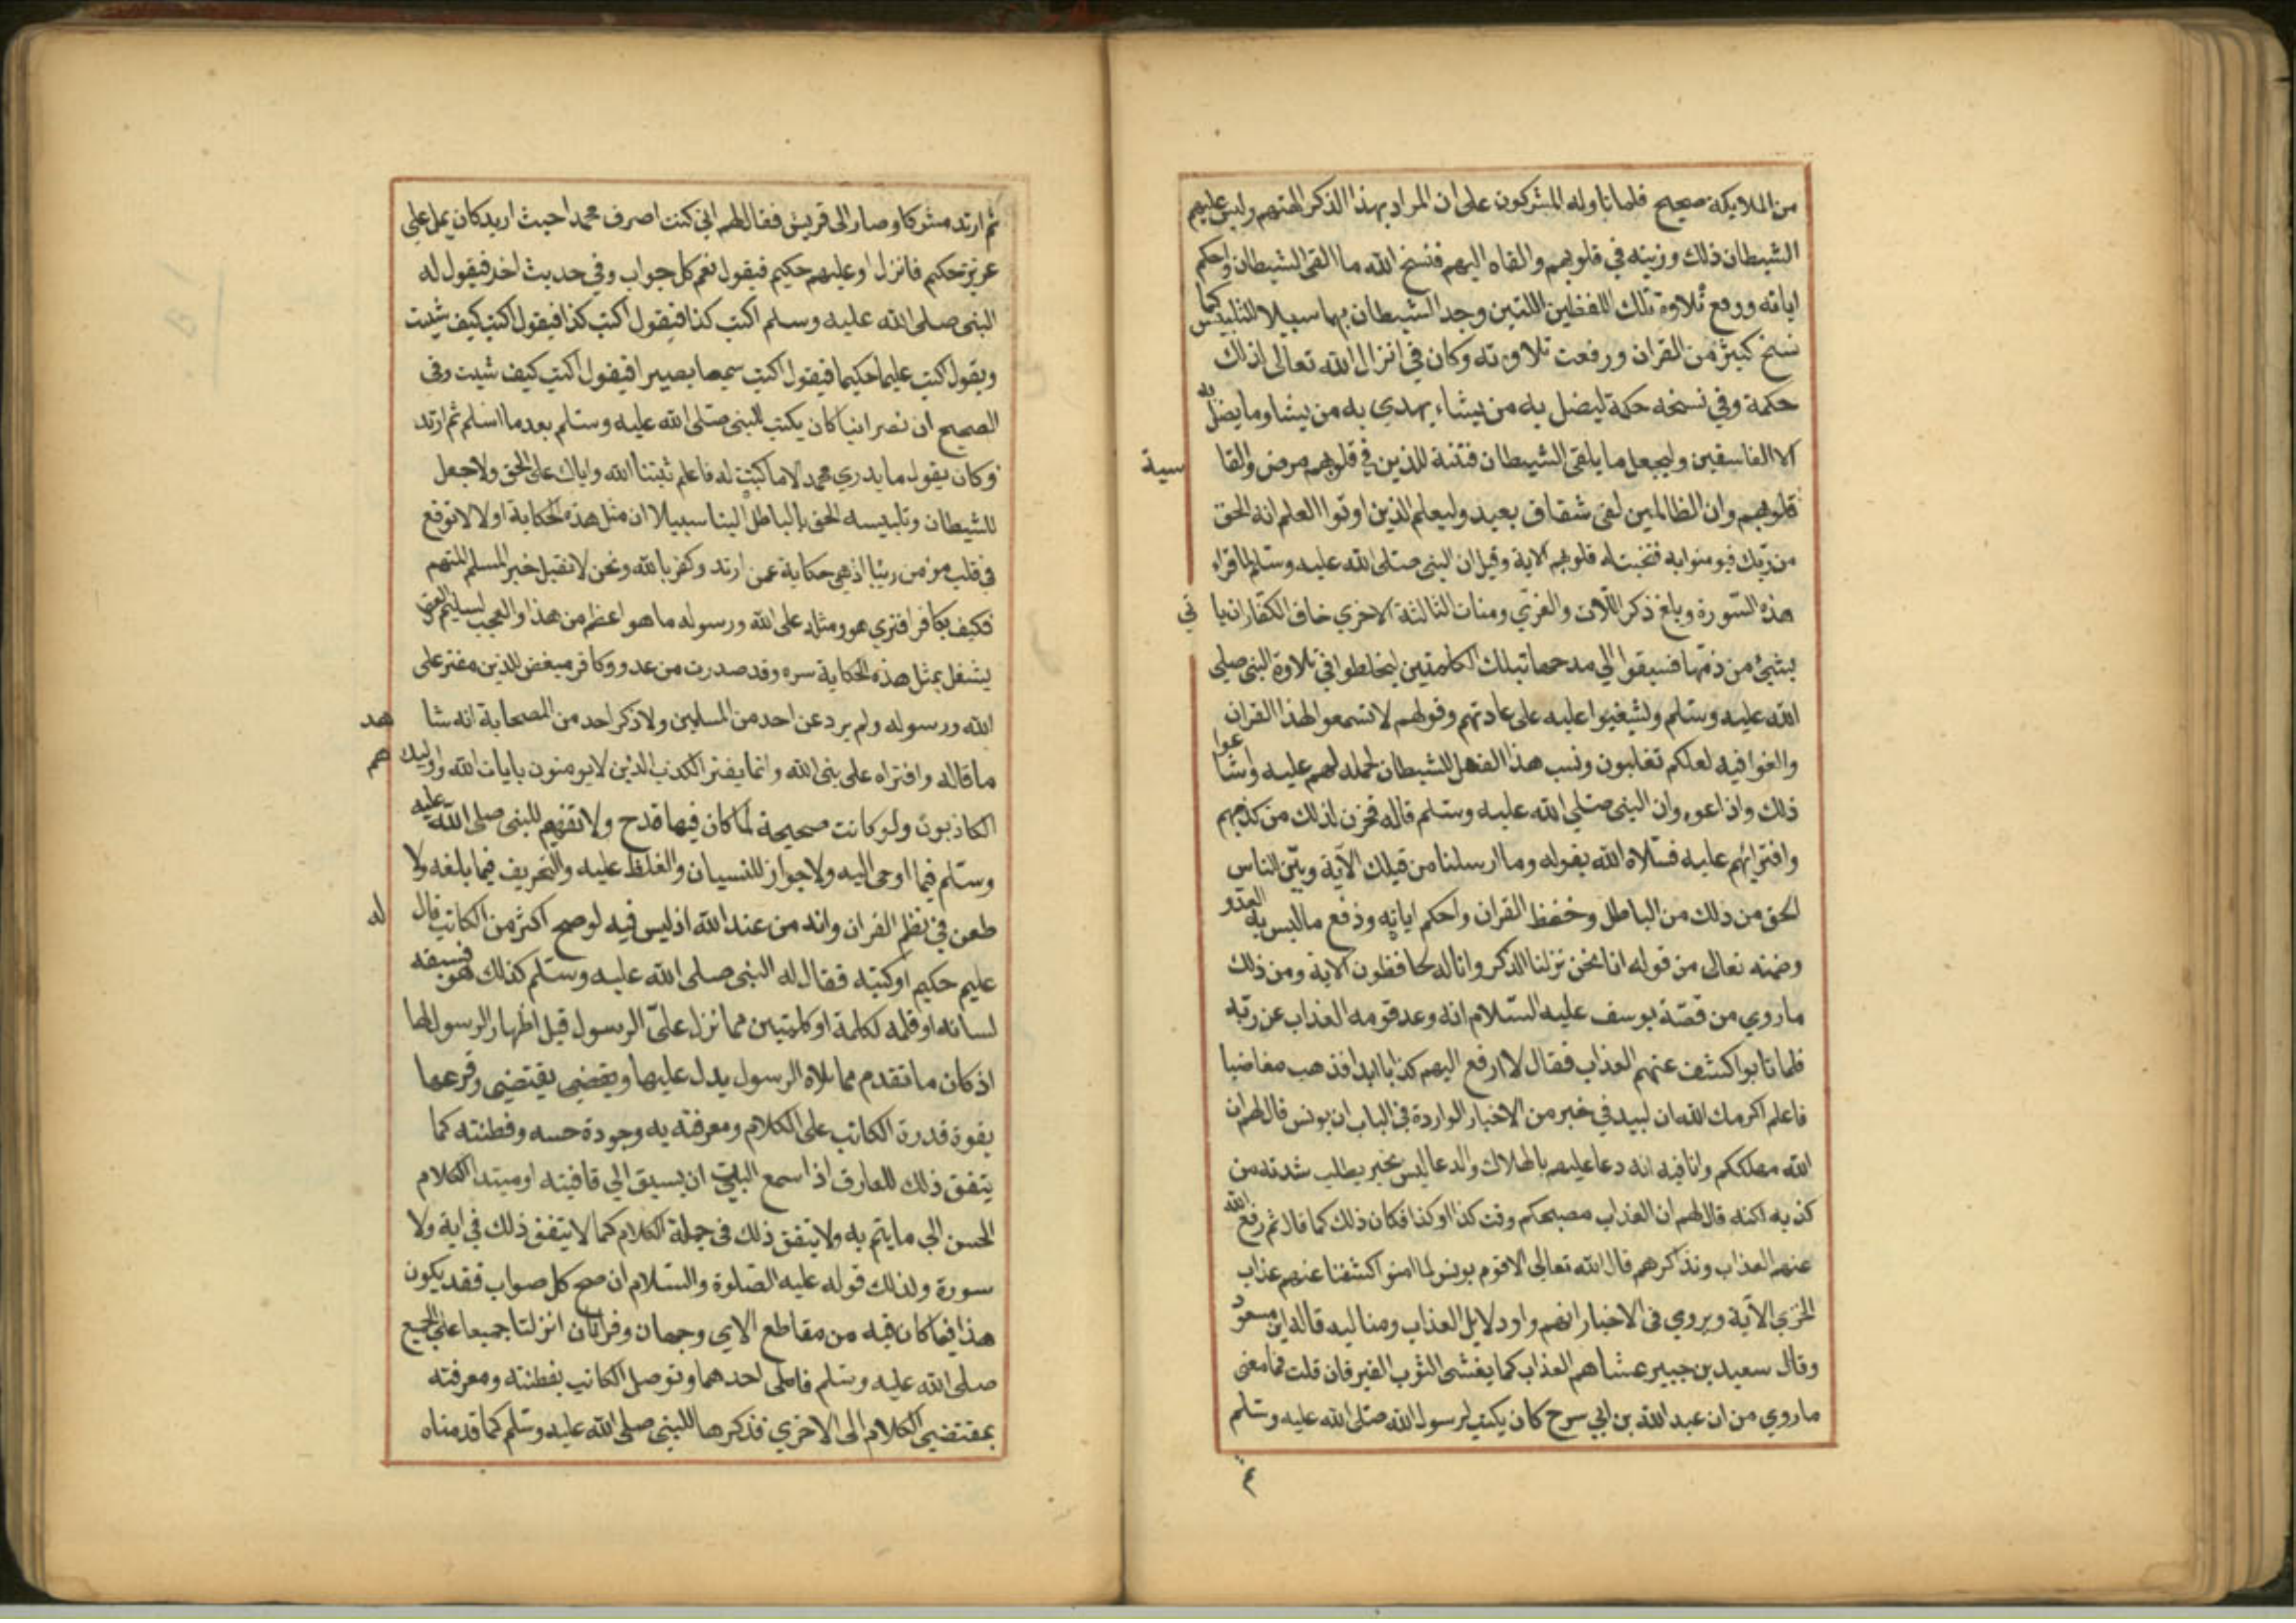 من الملايكة صحيح فلما تاوله المشركون على ان المراد بهذا الذكر الهتهم ولبس عليهم
الشيطان ذلك وزينه في قلوبهم والقاه اليهم فنسخ الله ما القى الشيطان واحكم
اياته ورفع تلاوة تلك اللفظين اللتين وجد الشيطان بهما سبيلا للتلبيس كما
نسخ كثير من القران ورفعت تلاوته وكان في انزال الله تعالى لذلك
حكمة وفي نسخه حكمة ليضل به من يشاء يهدي به من يشا وما يضل به
الا الفاسقين وليجعل ما يلقى الشيطان فتنة للذين في قلوبهم مرض والقا سية
قلوبهم وان الظالمين لفي شقاق بعيد وليعلم الذين اوتوا العلم انه الحق
من ربك فيومنوا به فتخبت له قلوبهم الاية وقيل ان النبى صلى الله عليه وسلم لما قراء
هذه السورة وبلغ ذكر اللات والعزي ومنات الثالثة الاخري خاف الكفار ان يا تي
بشيء من ذمها فسبقوا الي مدحها تبلك الكلمتين ليخلطوا في تلاوة النبى صلى
الله عليه وسلم ولشيغبوا عليه على عادتهم وقولهم لا تسمعوا لهذا القران
والغوا فيه لعلكم تغلبون ونسب هذا الفعل للشيطان لحمله لهم عليه واشا عوا
ذلك واذاعوه وان النبى صلى الله عليه وسلم قاله فحزن لذلك من كذبهم
وافترائهم عليه فسلاه الله بقوله وما ارسلنا من قبلك الآية وبيّن للناس
الحق من ذلك من الباطل وحفظ القران واحكم اياته ودفع ما لبس به العدو
وضمنه تعالى من قوله انا نحن نزلنا الذكر وانا له لحافظون الاية ومن ذلك
ما روي من قصّة يوسف عليه السّلام انه وعد قومه العذاب عن ربّه
فلما تابوا كشف عنهم العذاب فقال لا ارفع اليهم كذابا ابدا فذهب مغاضبا
فاعلم اكرمك الله ان ليبد في خبر من الاخبار الواردة في الباب ان يونس قال لهم ان
الله مهلككم وانا فيه انه دعا عليهم بالهلاك والدعا ليس بخبر يطلب شدته من
كذبه لكنه قال لهم ان العذاب مصبحكم وقت كذا اوكذا فكان ذلك كما قال ثم رفع الله
عنهم العذاب وتذاكرهم قال الله تعالى الا قوم يونس لما امنو كشفنا عنهم عذاب
الخزي الآية ويروي في الاخبار انهم راو دلايل العذاب ومنا ليه قاله ابن مسعود
وقال سعيد بن جبير عشاهم العذاب كما يغشى الثوب القبر فان قلت فما معنى
ما روي من ان عبد الله بن ابي سرح كان يكتب لرسول الله صلى الله عليه وسلم
ثم
ثم ارتد مشركا وصار الى قريش فقال لهم اني كنت اصرف محمدا حيث اريد كان يمل علي
عزيز حكيم فانزل او عليهم حكيم فيقول نعم كل جواب وفي حديث اخر فيقول له
النبى صلى الله عليه وسلم اكتب كذا فيقول اكتب كذا فيقول اكتب كيف شيت
ويقول اكتب عليما حكيما فيقول اكتب سميعا بصيرا فيقول اكتب كيف شيت وفي
الصحيح ان نصرانيا كان يكتب للنبى صلى الله عليه وسلم بعد ما اسلم ثم ارتد
وكان يقول ما يدري محمد الا ما كتبت له فاعلم ثبتنا الله واياك على الحق ولا جعل
للشيطان وتلبيسه الحق بالباطل الينا سبيلا ان مثل هذه الحكاية اولا لا توقع
في قلب مؤمن ريبا اذ هي حكاية عمن ارتد وكفر بالله ونحن لا نقبل خبر المسلم المتهم
فكيف بكافر افتري هو ومثله على الله ورسوله ما هو اعظم من هذا والعجب لسليم العقل
يشغل بمثل هذه الحكاية سره وقد صدرت من عدو وكافر مبغض للدين مفتر على
الله ورسوله ولم يرد عن احد من المسلمين ولا ذكر احد من الصحابة انه شا هد
ما قاله وافتراه على نبى الله وانما يفتر الكذب الذين لا يومنون بايات الله واوليك هم
الكاذبون ولو كانت صحيحة لما كان فيها قدح ولا تفهيم للنبى صلى الله عليه
وسلم فيما اوحى اليه ولا جواز للنسيان والغلط عليه والتحريف فيما بلغه ولا
طعن في نظم القران وانه من عند الله اذ ليس فيه لو صح اكثر من الكاتب قال له
عليم حكيم اوكتبه فقال له النبى صلى الله عليه وسلم كذلك هو فسبقه
لسانه او قلمه لكلمة او كلمتين مما نزل على الرسول قبل اظهار الرسول لها
اذ كان ما تقدم مما تلاه الرسول يدل عليها ويقضى يقتضى وقرعها
بقوة قدرة الكاتب على الكلام ومعرفته به وجودة حسه وفطنته كما
يتفق ذلك للعارف اذا سمع البيت ان يسبق الي قافيته اومبتدا الكلام
الحسن الي ما يتم به ولا يتفق ذلك في جملة الكلام كما لا يتفق ذلك في اية ولا
سورة ولذلك قوله عليه الصّلوة والسّلام ان صح كل صواب فقد يكون
هذا فيما كان فيه من مقاطع الاي وجهان وقراتان انزلتا جميعا على الجميع
صلى الله عليه وسلم فاملى احدهما وتوصل الكاتب بفطنته ومعرفته
بمقتضى الكلام الى الاخري فذكرها للنبى صلى الله عليه وسلم كما قدمناه